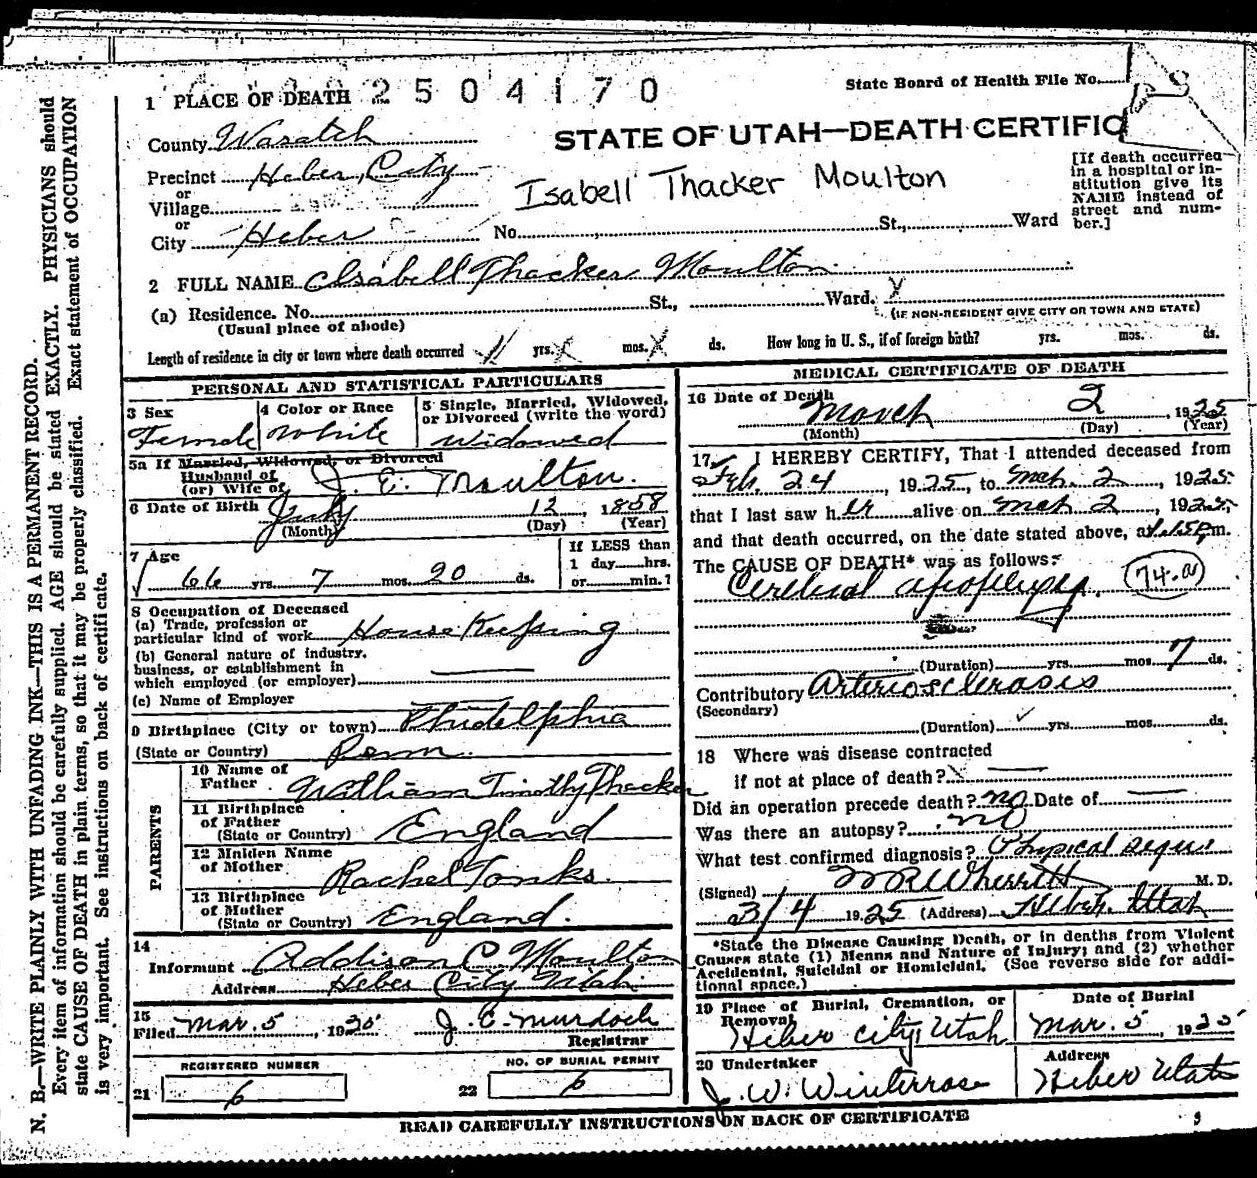 2504170
State Board of Health File No.
1 PLACE OF DEATH
County Wasatch
STATE OF UTAH—DEATH CERTIFIC
Precinct Heber City
or
Village
or
City Heber No. St., Ward
Isabell Thacker Moulton
[If death occurred
in a hospital or in-
stitution give its
NAME instead of
street and num-
ber.]
2 FULL NAME Isabell Thacker Moulton
(a) Residence. No. St., Ward.
(Usual place of abode)
(IF NON-RESIDENT GIVE CITY OR TOWN AND STATE)
Length of residence in city or town where death occurred yrs. mos. ds. How long in U. S., if of foreign birth? yrs. mos. ds.
PERSONAL AND STATISTICAL PARTICULARS
3 Sex
Female
4 Color or Race
White
5 Single, Married, Widowed,
or Divorced (write the word)
Widowed
5a If Married, Widowed, or Divorced
Husband of
(or) Wife of J. E. Moulton.
6 Date of Birth July 12, 1858
(Month) (Day) (Year)
7 Age
66 yrs. 7 mos. 20 ds.
If LESS than
1 day hrs.
or min.?
8 Occupation of Deceased
(a) Trade, profession or
particular kind of work House Keeping
(b) General nature of industry,
business, or establishment in
which employed (or employer)
(c) Name of Employer
9 Birthplace (City or town) Phidelphia
(State or Country) Penn.
PARENTS
10 Name of
Father William Timothy Thacker
11 Birthplace
of Father
(State or Country) England
12 Maiden Name
of Mother Rachel Tonks.
13 Birthplace
of Mother
(State or Country) England.
14
Informant Addison C Moulton
Address Heber City Utah
15
Filed Mar. 5, 1925 J. C. Murdock
Registrar
REGISTERED NUMBER
21 6
NO. OF BURIAL PERMIT
22 6
MEDICAL CERTIFICATE OF DEATH
16 Date of Death
March 2, 1925
(Month) (Day) (Year)
17. I HEREBY CERTIFY, That I attended deceased from
Feb. 24, 1925, to Mch. 2, 1925
that I last saw her alive on Mch 2, 1925,
and that death occurred, on the date stated above, at 1.15 p.m.
The CAUSE OF DEATH* was as follows:
Cerebral apoplexy. 74-a
(Duration) yrs. mos. 7 ds.
Contributory Arteriosclerosis
(Secondary)
(Duration) yrs. mos. ds.
18 Where was disease contracted
if not at place of death?
Did an operation precede death? no Date of
Was there an autopsy? no
What test confirmed diagnosis? Physical signs
(Signed) W R Wherritt M. D.
3/4 1925 (Address) Heber, Utah
*State the Disease Causing Death, or in deaths from Violent
Causes state (1) Means and Nature of Injury; and (2) whether
Accidental, Suicidal or Homicidal. (See reverse side for addi-
tional space.)
19 Place of Burial, Cremation, or
Removal
Heber City, Utah
Date of Burial
Mar. 5, 1925
20 Undertaker
J. W. Winterrose
Address
Heber Utah
READ CAREFULLY INSTRUCTIONS ON BACK OF CERTIFICATE
N. B.—WRITE PLAINLY WITH UNFADING INK—THIS IS A PERMANENT RECORD.
Every item of information should be carefully supplied. AGE should be stated EXACTLY. PHYSICIANS should
state CAUSE OF DEATH in plain terms, so that it may be properly classified. Exact statement of OCCUPATION
is very important. See instructions on back of certificate.